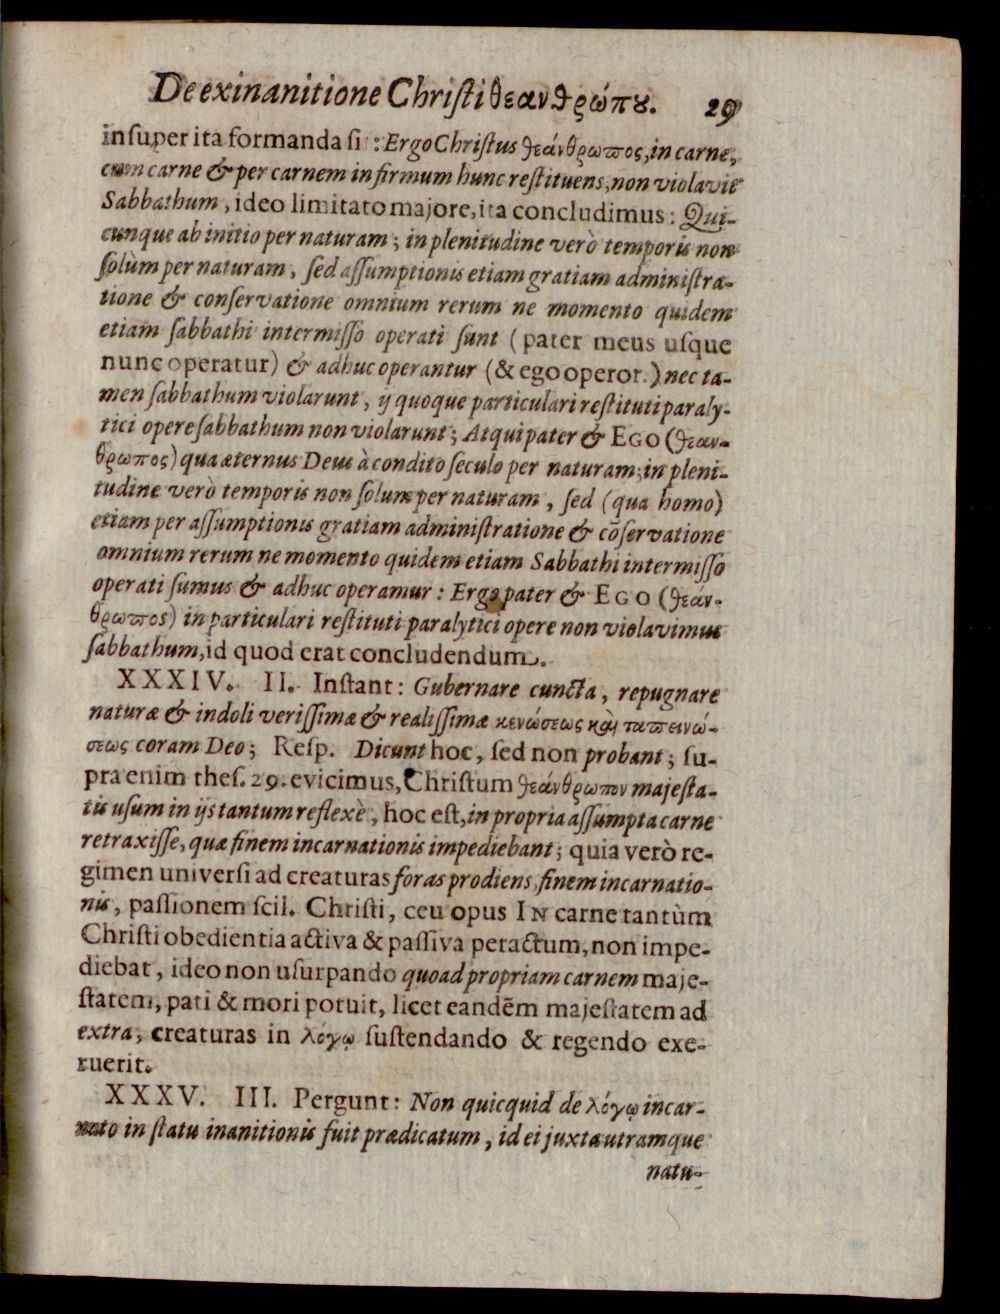 De exinanitione Christi θεανθρώπȣ. 29
inſuper ita formanda ſi : Ergo Chriſtus θεάνθρωπος, in carne,
cum carne & per carnem infirmum hunc reſtituens, non violavit
Sabbathum, ideo limitato majore, ita concludimus: Qui-
cunque ab initio per naturam; in plenitudine verò temporis non
ſolùm per naturam, ſed aſſumptionis etiam gratiam adminiſtra-
tione & conſervatione omnium rerum ne momento quidem
etiam ſabbathi intermiſſo operati ſunt (pater meus uſque
nunc operatur) & adhuc operantur (& ego operor.) nec ta-
men ſabbathum violarunt, ij quoque particulari reſtituti paraly-
tici opere ſabbathum non violarunt; Atqui pater & EGO (θεαν-
θρωπος) qua æternus Deus à condito ſeculo per naturam; in pleni-
tudine verò temporis non ſolum per naturam, ſed (qua homo)
etiam per aſſumptionis gratiam adminiſtratione & cõſervatione
omnium rerum ne momento quidem etiam Sabbathi intermiſſo
operati ſumus & adhuc operamur: Ergo pater & EGO (θεάν-
θρωπος) in particulari reſtituti paralytici opere non violavimus
ſabbathum, id quod erat concludendum.
XXXIV. II. Inſtant: Gubernare cuncta, repugnare
naturæ & indoli veriſſimæ & realiſſimæ κενώσεως καὶ ταπεινώ-
σεως coram Deo; Reſp. Dicunt hoc, ſed non probant; ſu-
pra enim theſ. 29. evicimus, Chriſtum θεάνθρωπον majeſta-
tis uſum in ijs tantum reflexè, hoc eſt, in propria aſſumpta carne
retraxiſſe, quæ finem incarnationis impediebant; quia verò re-
gimen univerſi ad creaturas foras prodiens, finem incarnatio-
nis, paſſionem ſcil. Chriſti, ceu opus IN carne tantùm
Chriſti obedientia activa & paſſiva peractum, non impe-
diebat, ideo non uſurpando quoad propriam carnem maje-
ſtatem, pati & mori potuit, licet eandẽm majeſtatem ad
extra, creaturas in λόγῳ ſuſtendando & regendo exe-
ruerit.
XXXV. III. Pergunt: Non quicquid de λόγῳ incar-
nato in ſtatu inanitionis fuit prædicatum, id ei juxta utramque
natu-